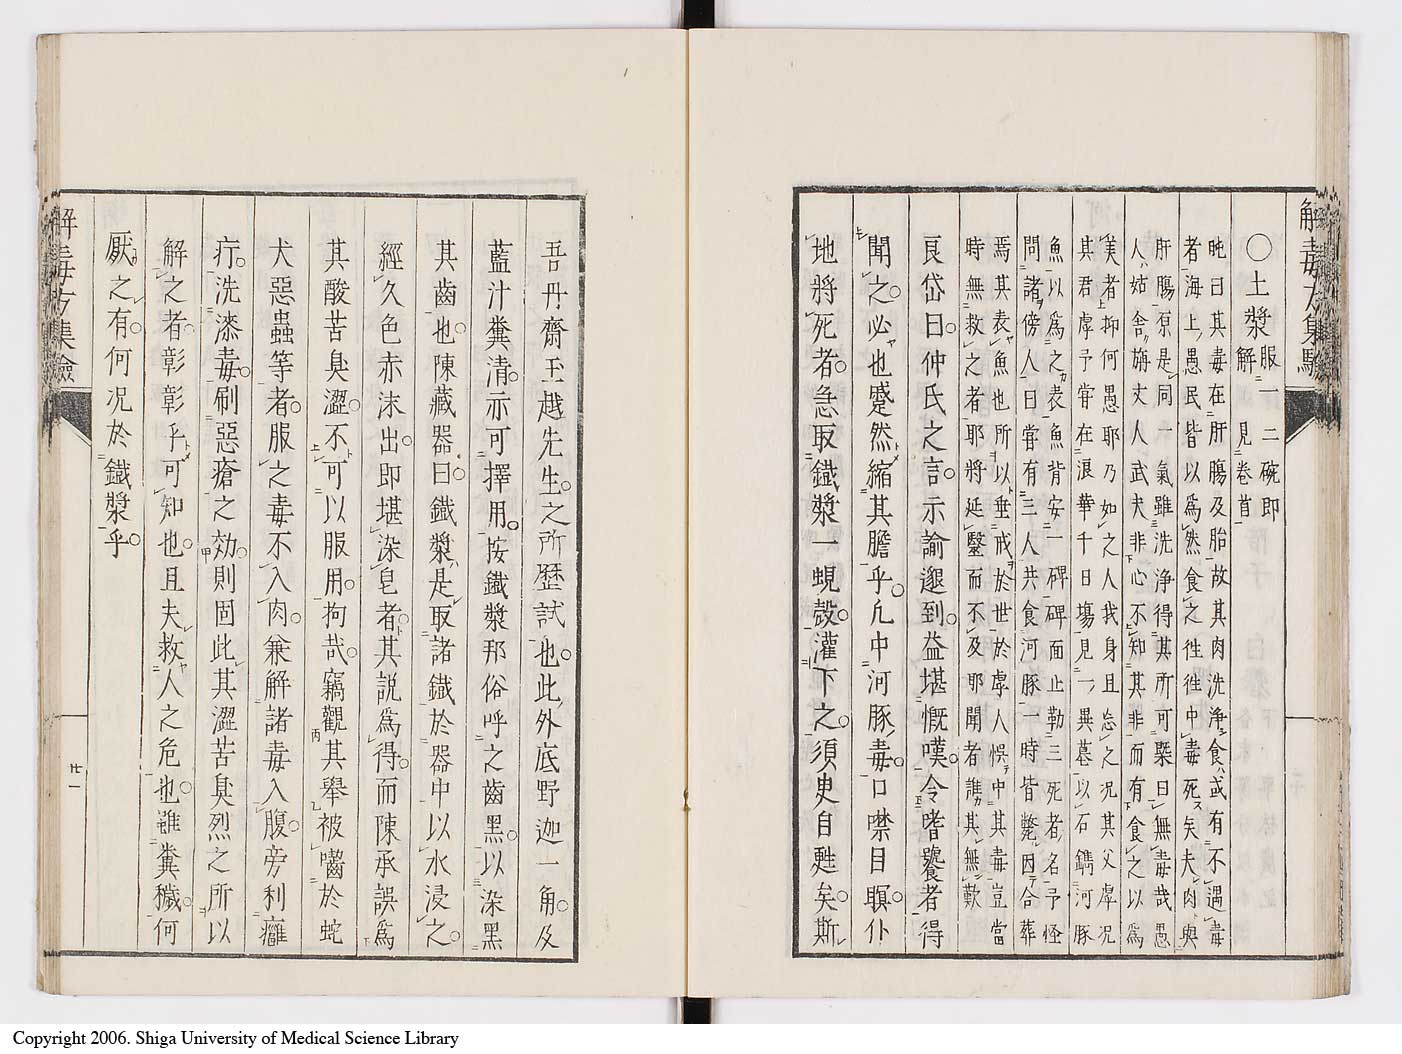 解毒方集驗
〇土漿服一二碗即
解見卷首
𠰸曰其毒在肝腸及胎故其肉洗淨食或有不遇毒
者海上愚民皆以爲然食之徃徃中毒死矣夫肉與
肝腸原是同一氣雖洗淨得其所可槩曰無毒哉愚
人姑舎旃丈人武夫非心不知其非而有食之以爲
美者抑何愚耶乃如之人我身且忘之况其父虖况
其君虖予甞在浪華千日塲見一異墓以石鐫河豚
魚以爲之表魚背安一碑碑面止勒三死者名予怪
問諸傍人曰甞有三人共食河豚一時皆斃因合葬
焉其表魚也所以垂戒於世於虖人悞中其毒豈當
時無救之者耶將延醫而不及耶聞者誰其無歎
艮岱曰仲氏之言示諭邀到益堪慨嘆令嗜饕者得
聞之必也蹙然縮其膽乎凡中河豚毒口噤目瞑仆
地將死者急取鐵漿一蜆殼灌下之須臾自甦矣斯
吾丹齋玉越先生之所歷試也此外底野迦一角及
藍汁糞清示可擇用按鐵漿那俗呼之齒黑以染黑
其齒也陳藏器曰鐵漿是取諸鐵於器中以水浸之
經久色赤沫出即堪染皂者其説爲得而陳承誤爲
其酸苦臭澀不可以服用拘哉竊觀其舉被嚙於蛇
犬惡蟲等者服之毒不入肉兼解諸毒入腹旁利癰
疔洗漆毒刷惡瘡之効則固此其澀苦臭烈之所以
解之者彰彰乎可知也且夫救人之危也雖糞穢何
厭之有何况於鐵漿乎
解毒方集驗
廿一
Copyright 2006. Shiga University of Medical Science Library